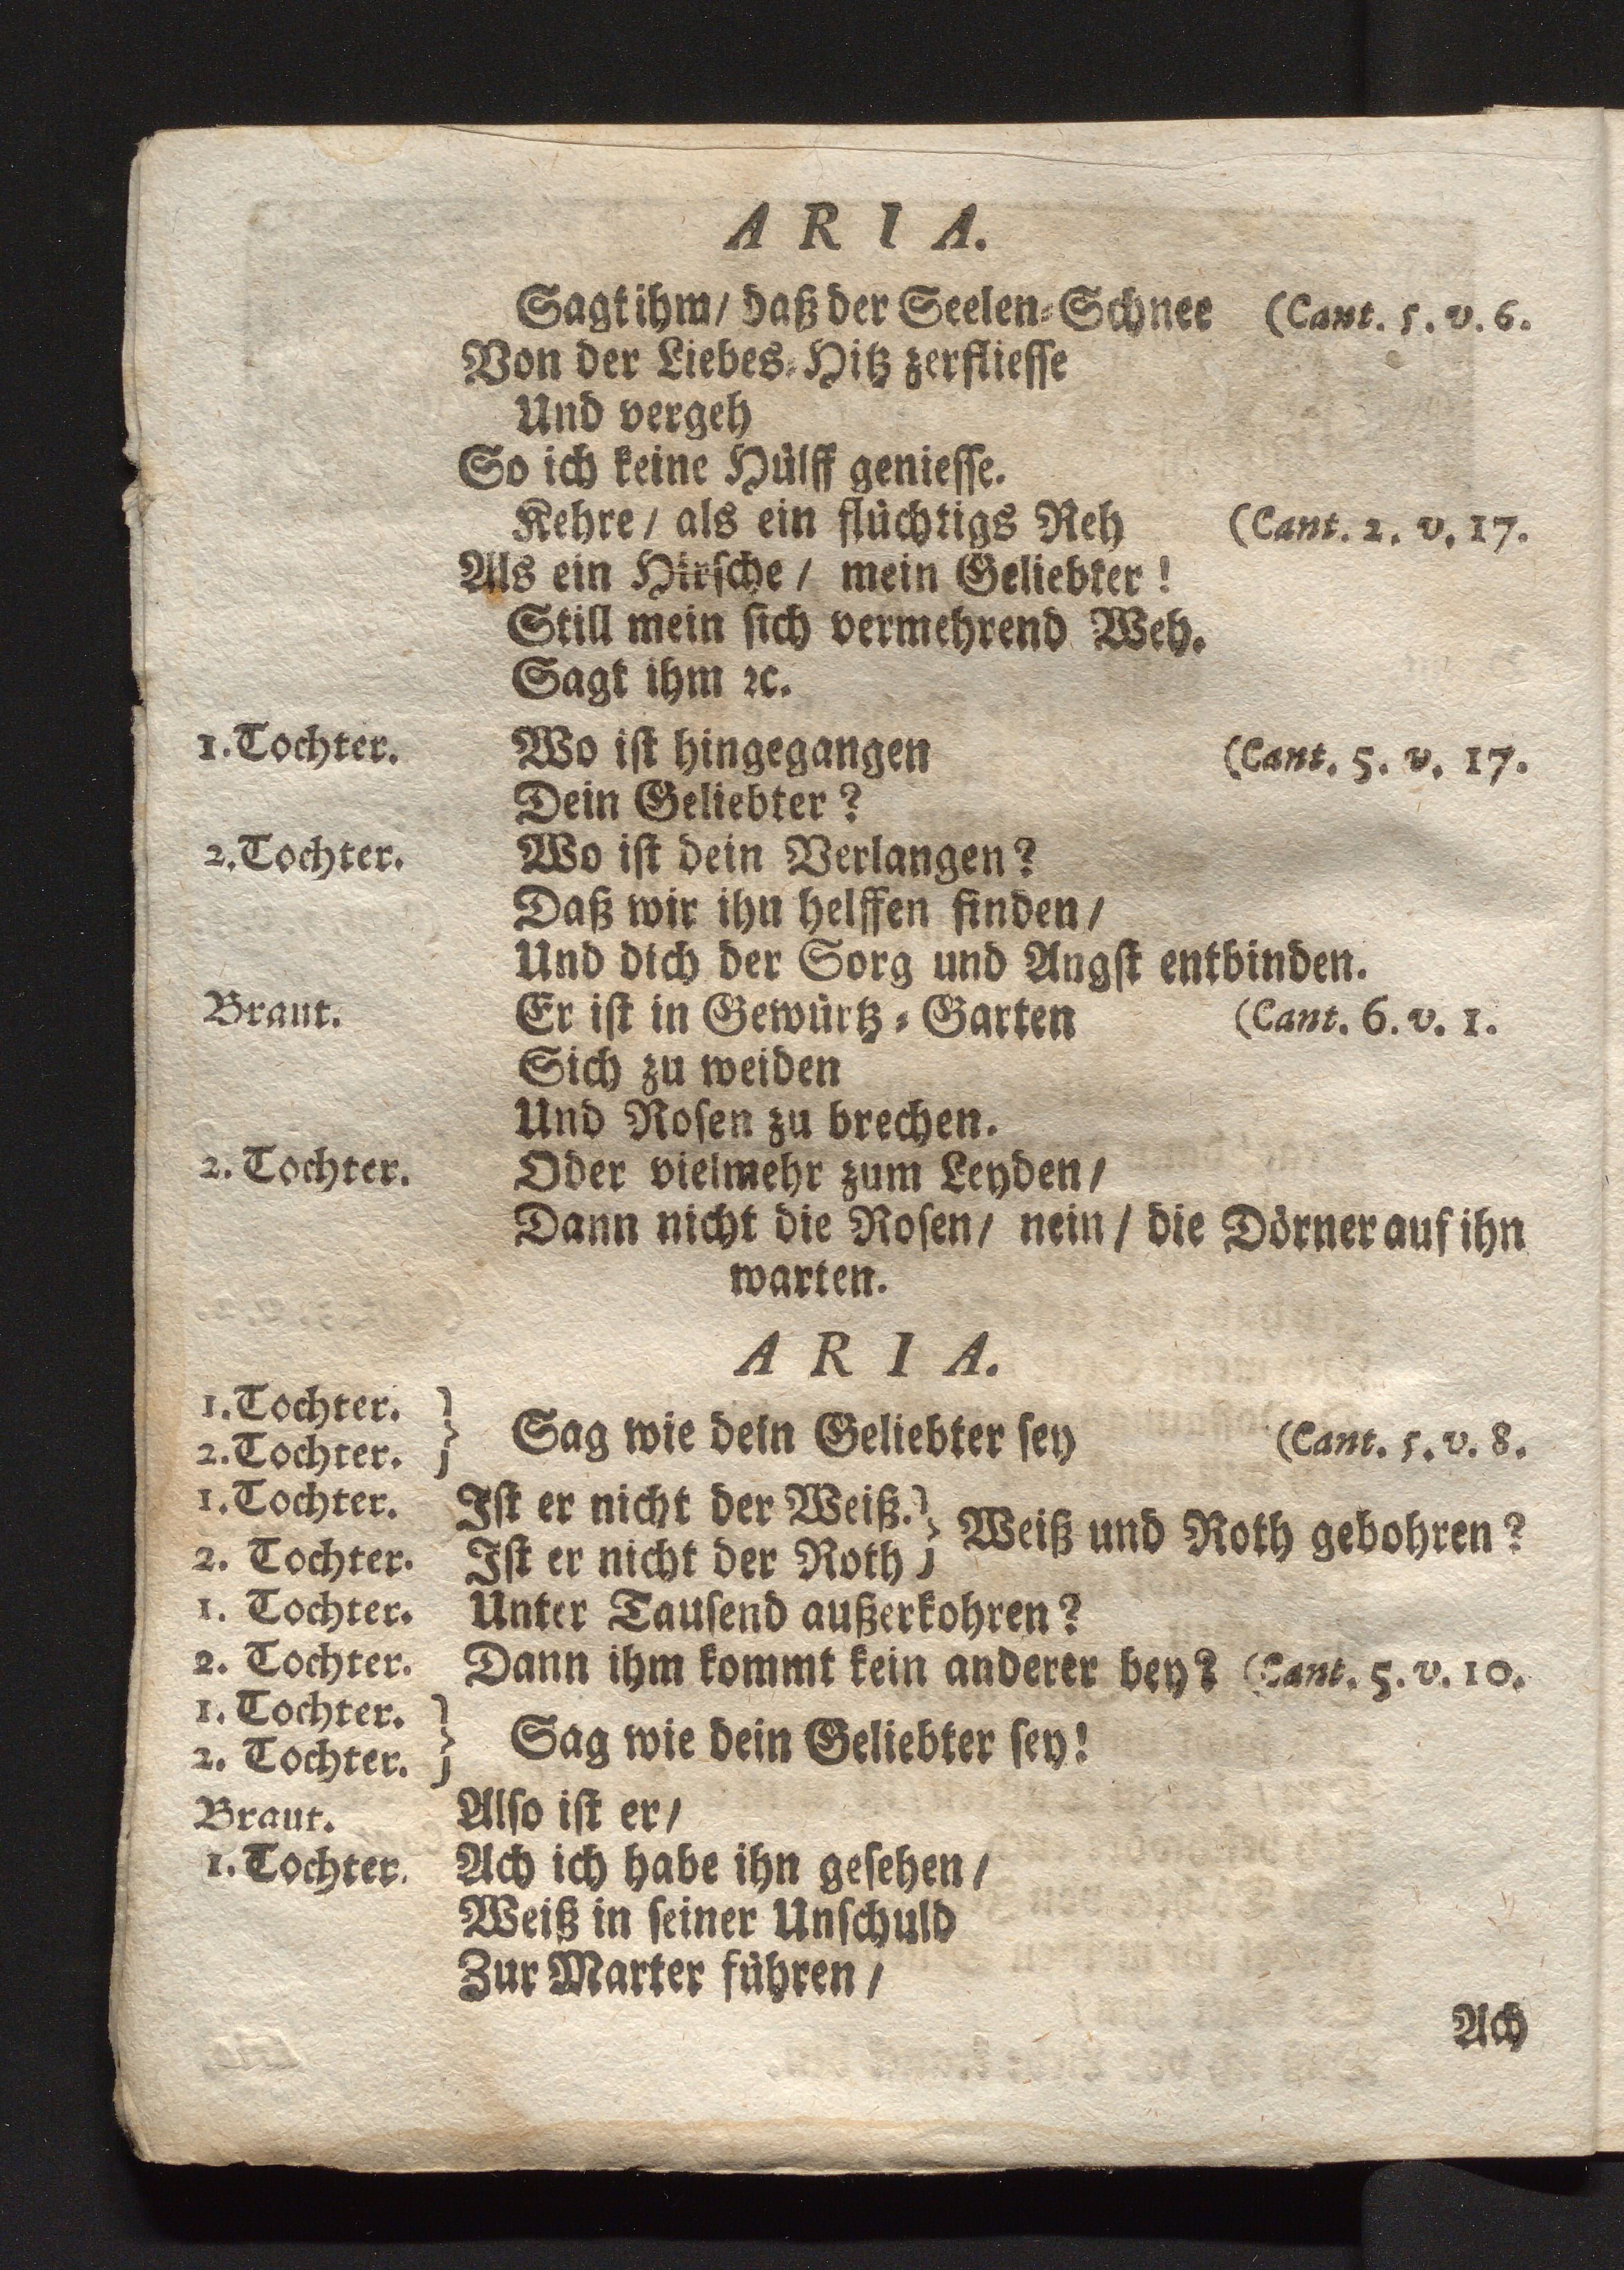 A R I A.
Sagt ihm/ daß der Seelen-Schnee (Cant. 5. v. 6.
Von der Liebes-Hitz zerfliesse
Und vergeh
So ich keine Hülff geniesse.
Kehre/ als ein flüchtigs Reh (Cant. 2. v. 17.
Als ein Hirsche/ mein Geliebter!
Still mein sich vermehrend Weh.
Sagt ihm ꝛc.
1. Tochter. Wo ist hingegangen (Cant. 5. v. 17.
Dein Geliebter?
2. Tochter. Wo ist dein Verlangen?
Daß wir ihn helffen finden/
Und dich der Sorg und Angst entbinden.
Braut. Er ist in Gewürtz-Garten (Cant. 6. v. 1.
Sich zu weiden
Und Rosen zu brechen.
2. Tochter. Oder vielmehr zum Leyden/
Dann nicht die Rosen/ nein/ die Dörner auf ihn
warten.
A R I A.
1. Tochter.
2. Tochter. } Sag wie dein Geliebter sey (Cant. 5. v. 8.
1. Tochter. Ist er nicht der Weiß.
2. Tochter. Ist er nicht der Roth } Weiß und Roth gebohren?
1. Tochter. Unter Tausend außerkohren?
2. Tochter. Dann ihm kommt kein anderer bey? (Cant. 5. v. 10.
1. Tochter.
2. Tochter. } Sag wie dein Geliebter sey!
Braut. Also ist er/
1. Tochter. Ach ich habe ihn gesehen/
Weiß in seiner Unschuld
Zur Marter führen/
Ach